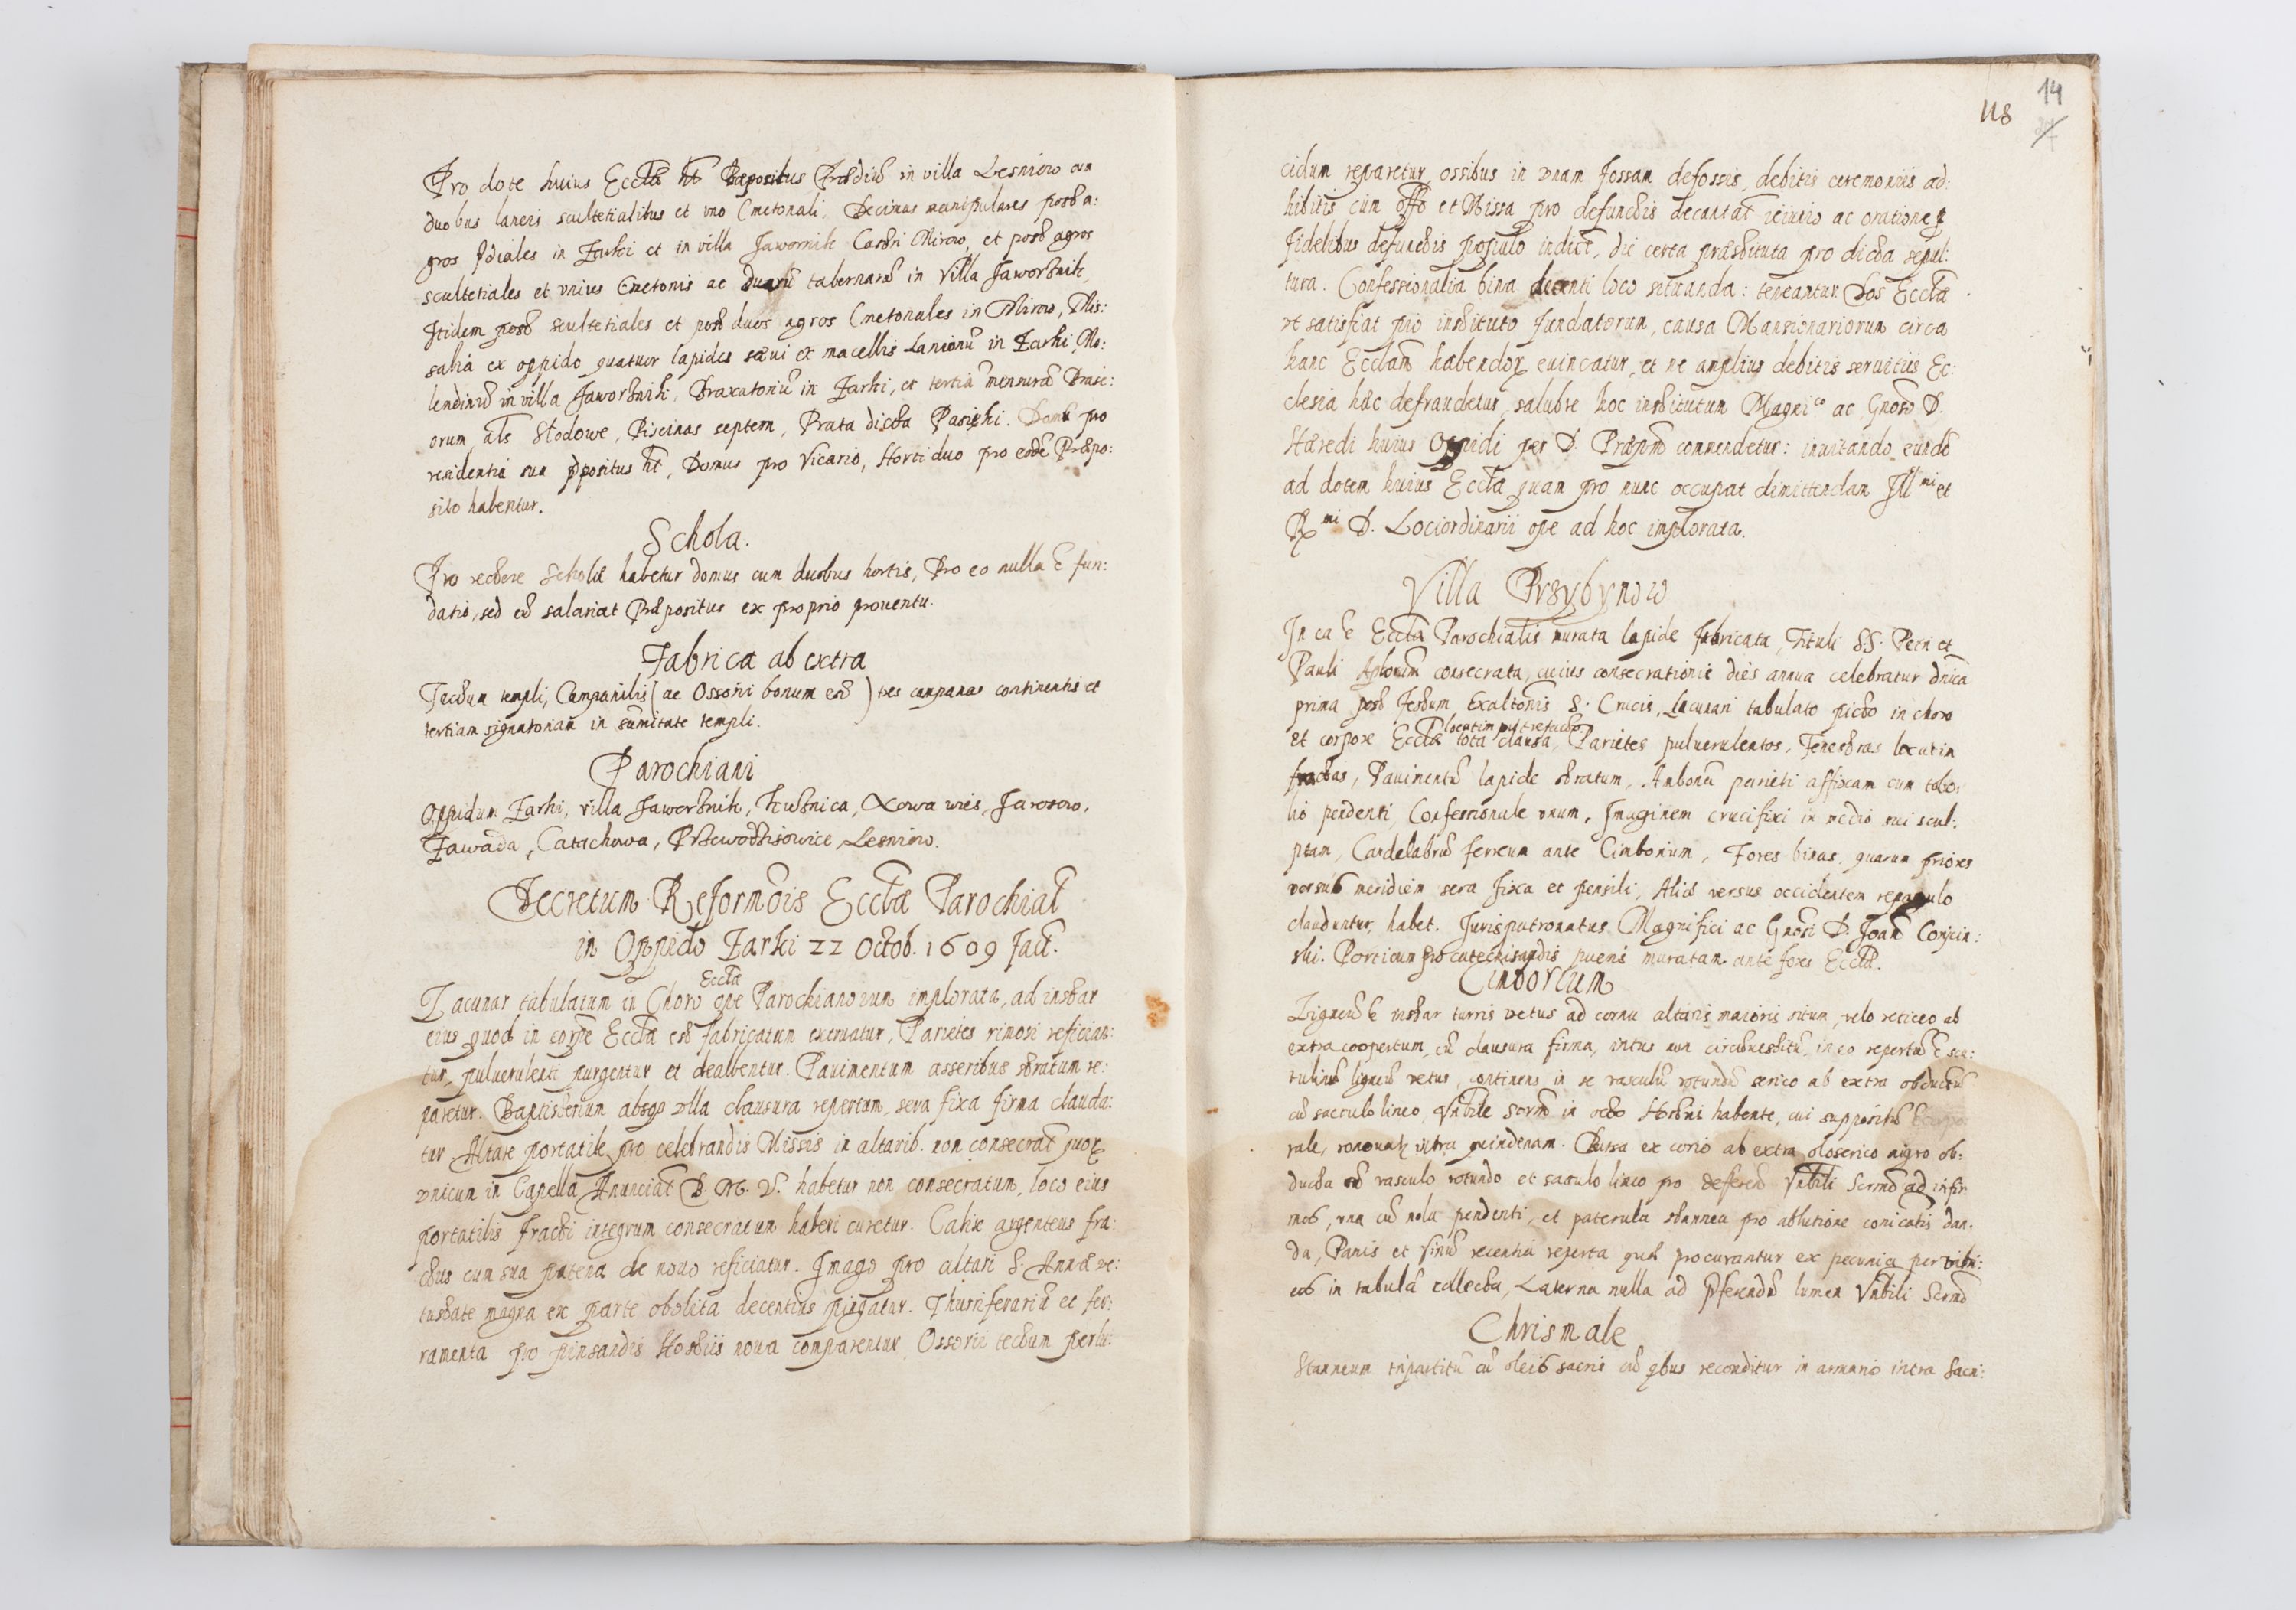 Pro dote huius Eccłæ ht Præpositus Prædiũ in villa Lesniow cum
duobus laneis scultetialibus et vno Cmetonali, Decimas manipulares post a:
gros pdiales in Zarki et in villa Jawornik Castri Mirow, et post agros
scultetiales et vnius Cmetonis ac duarũ tabernarũ in villa Jaworsnik,
Itidem post scultetiales et post duos agros Cmetonales in Mirow, Mis:
salia ex oppido quatuor lapides sæui ex macellis Lanionũ in Zarki, Mo:
lendinũ in villa Jaworsnik, Braxatoriũ in Zarki, et tertiã mensurã Brase:
orum als Słodowe, Piscinas septem, Prata dicta Pasieki. Domũ pro
residentia sua ppositus ht, Domus pro Vicario, Horti duo pro eodẽ Præpo:
sito habentur.
Schola.
Pro rectore Scholæ habetur domus cum duobus hortis, Pro eo nulla ẽ fun:
datio, sed eũ salariat Præpositus ex proprio prouentu.
Fabrica ab extra
Tectum templi, Campanilis (ac Ossorii bonum est) tres campanas continentis et
tertiam signatoriam in sũmitate templi.
Parochiani
Oppidum Zarki, villa Jaworsnik, Kusnica, Nowa wies, Jaroszow,
Zawada, Catachowa, Przewodzisowice, Lesniow.
Decretum Reformõis Eccłæ Parochiał
in Oppido Zarki 22 Octob. 1609 fact.
Eccłæ
Lacunar tabulatum in Choro ope Parochianorum implorata, ad instar
eius quod in corpe Eccłæ est fabricatum extruatur, Parietes rimosi refician:
tur, puluerulenti purgentur et dealbentur. Pauimentum asseribus stratum re:
paretur. Baptisterium absqз vlla clausura repertum, sera fixa firma clauda:
tur. Altare portatile pro celebrandis Missis in altarib. non consecrat quoꝝ
vnicum in Capella Anunciat B. M. V. habetur non consecratum, loco eius
portatilis fracti integrum consecratum haberi curetur. Calix argenteus fra:
ctus cum sua patena de nouo reficiatur. Imago pro altari S. Annæ ve:
tustate magna ex parte obolita decentius pingatur. Thuriferariũ et fer:
ramenta pro pinsandis Hostiis noua comparentur. Ossorii tectum perlu:
118
14
cidum reparetur, ossibus in vnam fossam defossis, debitis ceremoniis ad:
hibitis, cũm offo et Missa pro defunctis decantat ieiunio ac oratione p
fidelibus defunctis populo indict, die certa præstituta pro dicta sepul:
tura. Confessionalia bina decenti loco situanda: teneantur. Dos Eccłæ
vt satisfiat pio instituto fundatorum, causa Mansionariorum circa
hanc Eccłam habendoꝝ euincatur, et ne amplius debitis seruitiis Ec:
clesia hæc defraudetur, salubre hoc institutum Magnico ac Gnoso D.
Hæredi huius Oppidi per D. Præpm commendetur: inuitando eundẽ
ad dotem huius Eccłæ quam pro nunc occupat dimittendam Illmi et
Rmi D. Lociordinarii ope ad hoc implorata.
Villa Przybynow
In ea ẽ Eccłæ Parochialis murata lapide fabricata, Tituli SS. Petri et
Pauli Aplorum consecrata, cuius consecrationis dies annua celebratur dnica
prima post festum Exaltõnis S. Crucis, Lacunari tabulato picto in choro
locatim putrefacto
et corpore Eccłæ tota clausa, Parietes puluerulentos, Fenestras locatim
fractas, Pauimentũ lapide stratum, Ambonã parieti affixam cum tobo:
lio pendenti, Confessionale vnum, Imaginem crucifixi in medio sui scul:
ptam, Candelabrũ ferreum ante Cimborium, Fores binas, quarum priores
versus meridiem sera fixa et pensili, Aliæ versus occidentem repagulo
clauduntur, habet. Jurispatronatus Magnifici ac Gnosi D. Joan Corycin:
ski. Porticum pro catechisandis pueris muratam ante fores Eccłæ.
Cimborium
Ligneũ ẽ instar turris vetus ad cornu altaris maioris situm, velo reticeo ab
extra coopertum, cũ clausura firma, intus non circũuestitũ, in eo repertũ ẽ scr:
tulinũ ligneũ vetus, continens in se vasculũ rotundũ serico ab extra obductũ
cũ sacculo lineo, Vnbile Scrmũ in octo Hostiis habente, cui suppositũ ẽ corpo
rale, renouatz vltra quindenam. Bursa ex corio ab extra oloserico nigro ob:
ducta cũ vasculo rotundo et sacculo lineo pro deferen Vnbili Scrmõ ad infir:
mos, vna cũ nola pendenti, et paterula stannea pro ablutione comicatis dan:
da, Panis et Vinũ recentia reperta quæ procurantur ex pecunia per vitri:
cos in tabulã collecta, Laterna nulla ad pferendũ lumen Vnbili Scrmõ
Chrismale
Stanneum tripartitũ cũ oleis sacris cũ qbus reconditur in armario intra Sacri: